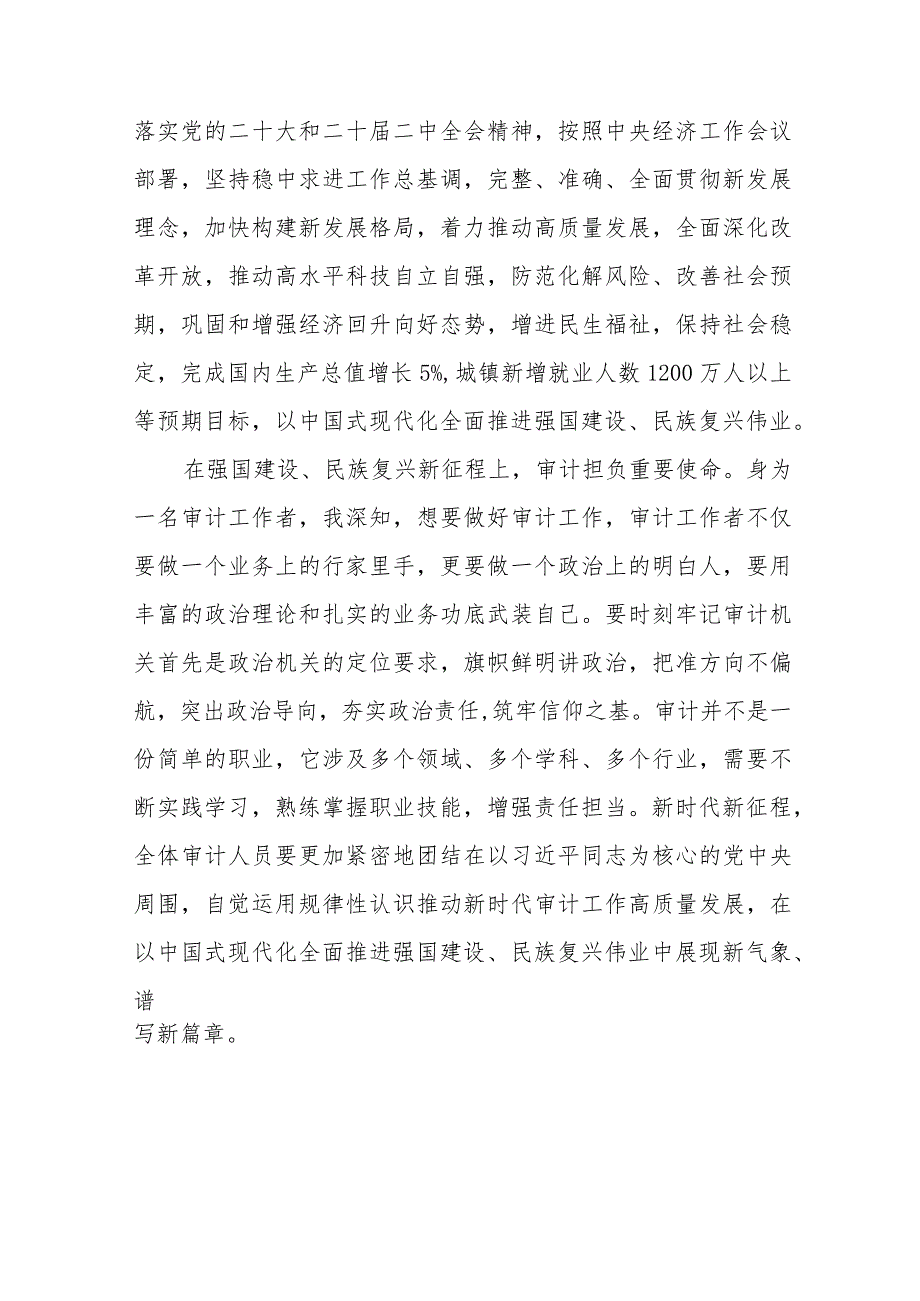 落实党的二十大和二十届二中全会精神，按照中央经济工作会议
部署，坚持稳中求进工作总基调，完整、准确、全面贯彻新发展
理念，加快构建新发展格局，着力推动高质量发展，全面深化改
革开放，推动高水平科技自立自强，防范化解风险、改善社会预
期，巩固和增强经济回升向好态势，增进民生福祉，保持社会稳
定，完成国内生产总值增长5%,城镇新增就业人数1200万人以上
等预期目标，以中国式现代化全面推进强国建设、民族复兴伟业。
在强国建设、民族复兴新征程上，审计担负重要使命。身为
一名审计工作者，我深知，想要做好审计工作，审计工作者不仅
要做一个业务上的行家里手，更要做一个政治上的明白人，要用
丰富的政治理论和扎实的业务功底武装自己。要时刻牢记审计机
关首先是政治机关的定位要求，旗帜鲜明讲政治，把准方向不偏
航，突出政治导向，夯实政治责任,筑牢信仰之基。审计并不是一
份简单的职业，它涉及多个领域、多个学科、多个行业，需要不
断实践学习，熟练掌握职业技能，增强责任担当。新时代新征程，
全体审计人员要更加紧密地团结在以习近平同志为核心的党中央
周围，自觉运用规律性认识推动新时代审计工作高质量发展，在
以中国式现代化全面推进强国建设、民族复兴伟业中展现新气象、
谱
写新篇章。